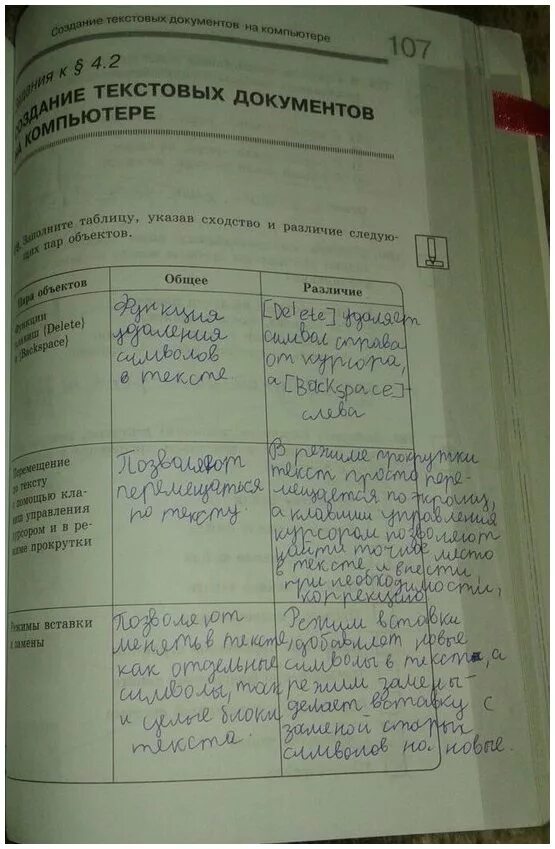 Создание текстовых документов на компьютере
107
к § 4.2
СОЗДАНИЕ ТЕКСТОВЫХ ДОКУМЕНТОВ
НА КОМПЬЮТЕРЕ
Заполните таблицу, указав сходство и различие следую-
щих пар объектов.
Пара объектов
Общее
Различие
Функции
клавиш {Delete}
и {Backspace}
Функция
удаления
символов
в тексте.
[Delete] удаляет
символ справа
от курсора,
а [Backspace]-
слева
Перемещение
по тексту
с помощью кла-
виш управления
курсором и в ре-
жиме прокрутки
Позволяют
перемещаться
по тексту.
В режиме прокрутки
текст просто пере-
мещается по экрану,
а клавиши управления
курсором позволяют
найти точное место
в тексте и внести
при необходимости,
коррекцию
Режимы вставки
и замены
Позволяют
менять в тексте,
как отдельные
символы, так
и целые блоки
текста.
Режим вставки
добавляет новые
символы в текст, а
режим замены-
делает вставку с
заменой старый
символов на новые.